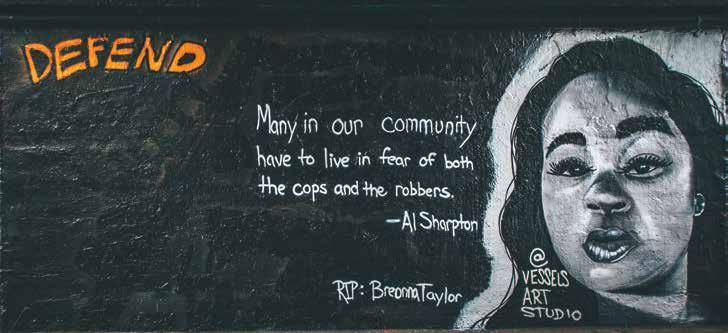 DEFEND
Many in our community
have to live in fear of both
the cops and the robbers.
—Al Sharpton
RIP: Breonna Taylor
@
VESSELS
ART
STUDIO